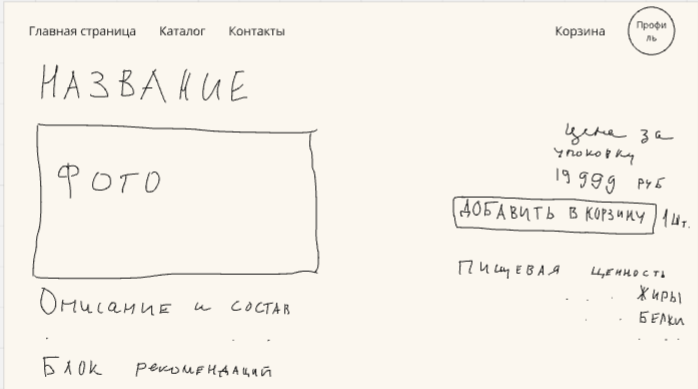 Главная страница Каталог Контакты Корзина Профи
ль
НАЗВАНИЕ
ФОТО
Цена за
упаковку
19 999 руб
ДОБАВИТЬ В КОРЗИНУ 1 шт.
Пищевая ценность
Жиры
Белки
Описание и состав
Блок рекомендаций